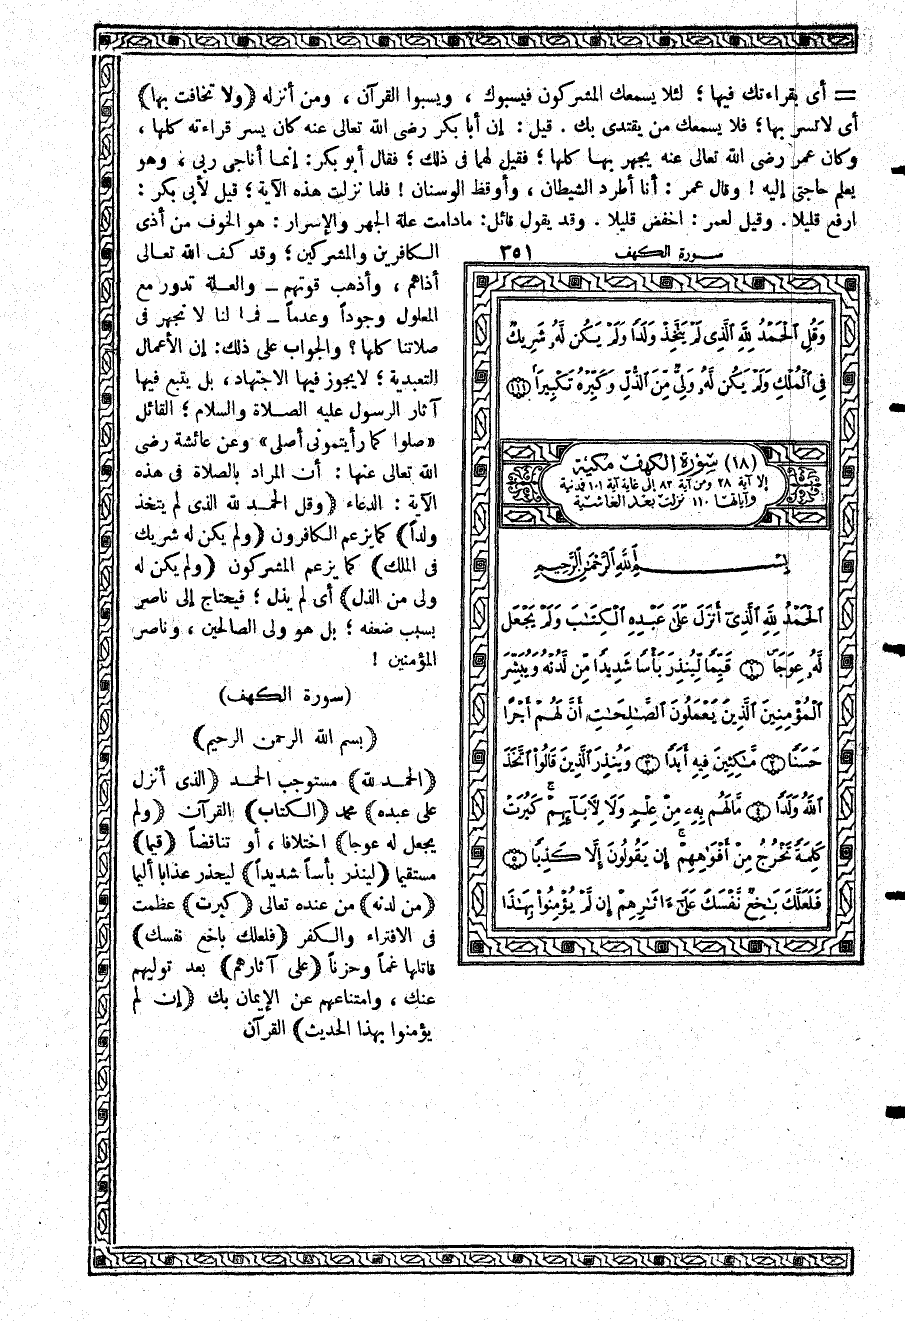 = أى بقراءتك فيها ؛ لئلا يسمعك المشركون فيسبوك ، ويسبوا القرآن ، ومن أنزله (ولا تخافت بها)
أى لاتسر بها ؛ فلا يسمعك من يقتدى بك . قيل : إن أبا بكر رضى الله تعالى عنه كان يسر قراءته كلها ،
وكان عمر رضى الله تعالى عنه يجهر بها كلها ؛ فقيل لهما فى ذلك ؛ فقال أبو بكر : إنما أناجى ربى ، وهو
يعلم حاجتى إليه ! وقال عمر : أنا أطرد الشيطان ، وأوقظ الوسنان ! فلما نزلت هذه الآية ؛ قيل لأبى بكر :
ارفع قليلا . وقيل لعمر : اخفض قليلا . وقد يقول قائل : مادامت علة الجهر والإسرار : هو الخوف من أذى
الكافرين والمشركين ؛ وقد كف الله تعالى
أذاهم ، وأذهب قوتهم ــ والعلة تدور مع
المعلول وجوداً وعدماً ــ فما لنا لا نجهر فى
صلاتنا كلها ؟ والجواب على ذلك : إن الأعمال
التعبدية ؛ لايجوز فيها الاجتهاد ، بل يتبع فيها
آثار الرسول عليه الصلاة والسلام ؛ القائل
«صلوا كما رأيتمونى أصلى» وعن عائشة رضى
الله تعالى عنها : أن المراد بالصلاة فى هذه
الآية : الدعاء (وقل الحمد لله الذى لم يتخذ
ولداً) كما يزعم الكافرون (ولم يكن له شريك
فى الملك) كما يزعم المشركون (ولم يكن له
ولى من الذل) أى لم يذل ؛ فيحتاج إلى ناصر
بسبب ضعفه ؛ بل هو ولى الصالحين ، وناصر
المؤمنين !
(سورة الكهف)
(بسم الله الرحمن الرحيم)
(الحمد لله) مستوجب الحمد (الذى أنزل
على عبده) محمد (الكتاب) القرآن (ولم
يجعل له عوجا) اختلافا ، أو تناقضاً (قيما)
مستقيما (لينذر بأساً شديداً) ليحذر عذابا أليما
(من لدنه) من عنده تعالى (كبرت) عظمت
فى الافتراء والكفر (فلعلك باخع نفسك)
قاتلها غماً وحزناً (على آثارهم) بعد توليهم
عنك ، وامتناعهم عن الإيمان بك (إن لم
يؤمنوا بهذا الحديث) القرآن
سورة الكهف ٣٥١
وَقُلِ ٱلْحَمْدُ لِلَّهِ ٱلَّذِى لَمْ يَتَّخِذْ وَلَدًا وَلَمْ يَكُن لَّهُۥ شَرِيكٌ
فِى ٱلْمُلْكِ وَلَمْ يَكُن لَّهُۥ وَلِىٌّ مِّنَ ٱلذُّلِّ وَكَبِّرْهُ تَكْبِيرًا ١١١
(١٨) سورة الكهف مكية
إلا آية ٢٨ ومن آية ٨٣ إلى غاية آية ١٠١ فمدنية
وآياتها ١١٠ نزلت بعد الغاشية
بِسْمِ ٱللَّهِ ٱلرَّحْمَٰنِ ٱلرَّحِيمِ
ٱلْحَمْدُ لِلَّهِ ٱلَّذِىٓ أَنزَلَ عَلَىٰ عَبْدِهِ ٱلْكِتَٰبَ وَلَمْ يَجْعَل
لَّهُۥ عِوَجَا ١ قَيِّمًا لِّيُنذِرَ بَأْسًا شَدِيدًا مِّن لَّدُنْهُ وَيُبَشِّرَ
ٱلْمُؤْمِنِينَ ٱلَّذِينَ يَعْمَلُونَ ٱلصَّٰلِحَٰتِ أَنَّ لَهُمْ أَجْرًا
حَسَنًا ٢ مَّٰكِثِينَ فِيهِ أَبَدًا ٣ وَيُنذِرَ ٱلَّذِينَ قَالُوا۟ ٱتَّخَذَ
ٱللَّهُ وَلَدًا ٤ مَّا لَهُم بِهِۦ مِنْ عِلْمٍ وَلَا لِـَٔابَآئِهِمْ ۚ كَبُرَتْ
كَلِمَةً تَخْرُجُ مِنْ أَفْوَٰهِهِمْ ۚ إِن يَقُولُونَ إِلَّا كَذِبًا ٥
فَلَعَلَّكَ بَٰخِعٌ نَّفْسَكَ عَلَىٰٓ ءَاثَٰرِهِمْ إِن لَّمْ يُؤْمِنُوا۟ بِهَٰذَا